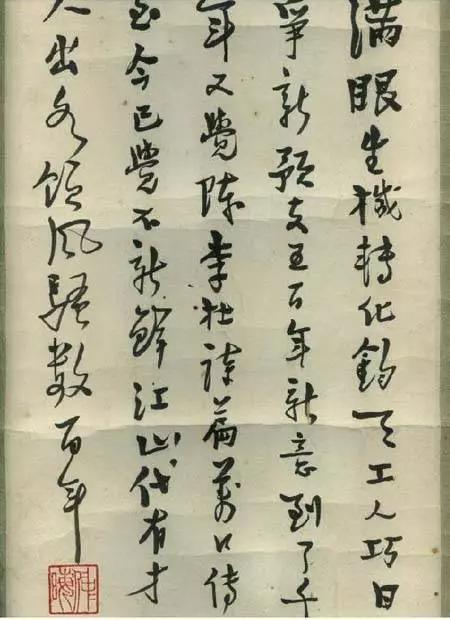 滿眼生機轉化鈞天工人巧日
爭新預支五百年新意到了千
年又覺陳李杜詩篇萬口傳
至今已覺不新鮮江山代有才
人出各領風騷數百年